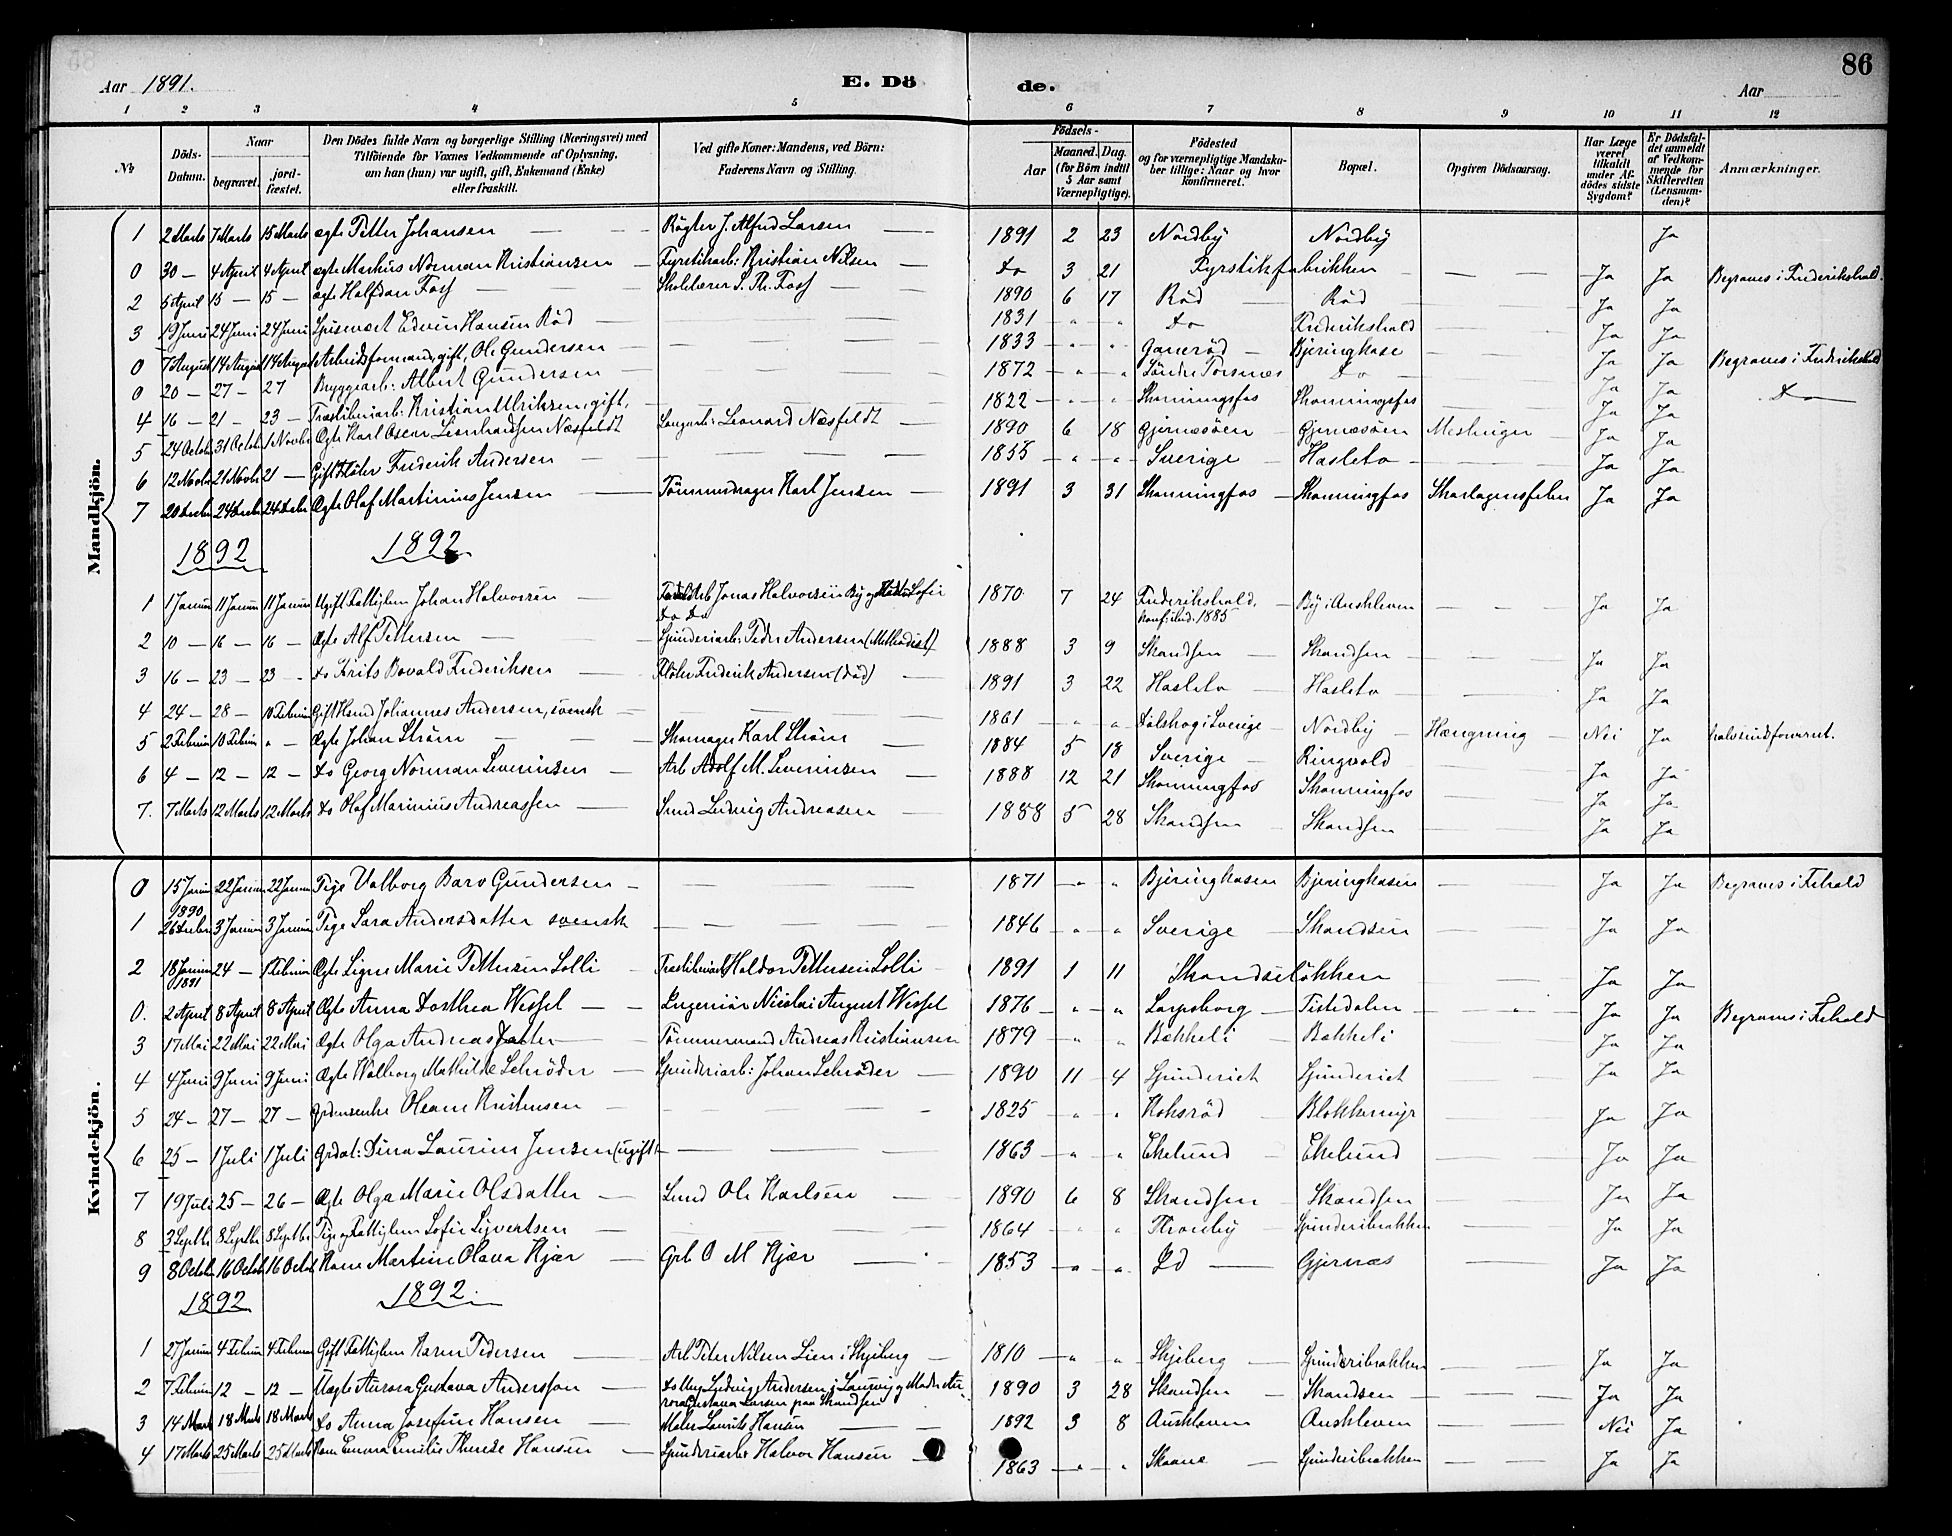 86
Aar 1891.
E. Dö de.
Aar
1 2 3 4 5 6 7 8 9 10 11 12
No
Döds-Datum.
Naar
begravet.
jordfæstet.
Den Dödes fulde Navn og borgerlige Stilling (Næringsvei) med Tilföiende for Voxnes Vedkommende af Oplysning, om han (hun) var ugift, gift, Enkemand (Enke) eller fraskilt.
Ved gifte Koner: Mandens, ved Börn: Faderens Navn og Stilling.
Födsels-
Aar
Maaned. Dag.
(for Börn indtil 5 Aar samt Værnepligtige).
Födested og for værnepligtige Mandskaber tillige: Naar og hvor konfirmeret.
Bopæl.
Opgiven Dödsaarsag.
Har Læge været tilkaldt under Afdödes sidste Sygdom?
Er Dödsfaldet anmeldt af Vedkommende for Skifteretten (Lensmanden)?
Anmærkninger.
Mandkjön.
1 2 Marts 7 Marts 15 Marts ægte Petter Johansen — Røgter J. Alfred Larsen — 1891 2 23 Nordby Nordby Ja
0 30 — 4 April 4 April ægte Markus Norman Kristiansen — Fyrstikarb: Kristian Nilsen — Do 3 21 Fyrstikfabrikken — Ja Ja Begraves i Frederikshald.
2 5 April 15 — 15 — ægte Halfdan Foss — Skolelærer S. Th. Foss — 1890 6 17 Rød — Rød — Ja Ja
3 19 Juni 24 Juni 24 Juni Spisevært Edvin Hansen Rød — 1831 " " Do Frederikshald — Ja Ja
0 7 August 14 August 14 August Arbeidsformand, gift, Ole Gundersen — 1833 " " Ganerød — Bjeringhase — Ja Ja Begraves i Frederikshald
0 20 — 27 — 27 Bryggearb: Albert Gundersen — 1872 — " " Søndre Torsnæs Do — Ja Ja Do
4 16 — 21 — 23 — Træsliberiarb: Kristian Ulriksen, gift, — 1822 — " " Skonningsfos Skonningsfos — Ja Ja
5 24 Octob 31 Octob 1 Novbr Ægte Karl Oscar Leonhardsen Næsfeldt Leonard Næsfeldt — 1890 6 18 Gjernæsøen — Gjernæsøen Meslinger — Ja Ja
6 12 Novbr 21 Novbr 21 — Gift Fløter Frederik Andersen — 1855 — " " Sverige — Hasleto — Ja Ja
7 20 Decbr 24 Decbr 24 Decbr Ægte Olaf Martinius Jensen — Tømmerdrager Karl Jensen — 1891 3 31 Skonningfos — Skonningfos Skarlagensfeber Ja Ja
1892 1892
1 1 Januar 11 Januar 11 Januar Ugift Fattiglem Johan Halvorsen — Jonas Halvorsen By og Sofie Do Do 1870 7 24 Frederikshald, konf. ibid. 1885 — By i Ankleven — Ja Ja
2 10 — 16 — 16 — Ægte Alf Pettersen — Spinderiarb: Peder Andersen (Methodist) 1888 3 9 Skandsen — Skandsen — Ja Ja
3 16 — 23 — 23 — Do Frits Bovald Frederiksen — Fløter Frederik Andersen (død) — 1891 3 22 Hasleto — Hasleto — Ja Ja
4 24 — 28 — 10 Februar Gift Johannes Andersen, svensk — 1861 — " " Dalskog i Sverige — Nordby — Hængning — Nei Ja
5 2 Februar 10 Februar " — Ægte Johan Strøm — Skomager Karl Strøm 1884 5 18 Sverige — Ringvold — Ja Ja
6 4 — 12 — 12 — Do Georg Norman Severinsen — Arb Adolf M. Severinsen — 1888 12 21 Skonningfos Skonningfos — Ja Ja
7. 7 Marts 12 Marts 12 Marts Do Olaf Marinius Andreassen — Smed Ludvig Andreasen — 1888 5 28 Skandsen — Skandsen — Ja Ja
Kvindekjön.
0 15 Januar 22 Januar 22 Januar Pige Valborg Gundersen — 1871 — " " Bjeringhasen Bjeringhasen — Ja Ja Begraves i Fchald
1 1890 26 Decbr 3 Januar 3 Januar Pige Sara Andersdatter svensk — 1846 — " " Sverige — Skandsen — Ja Ja
2 18 Januar 1891 24 — 1 Februar Ægte Signe Marie Pettersen Solli — Træsliberiarb Haldor Pettersen Solli — 1891 1 11 Skandseløkken — Ja Ja
0. 2 April 8 April 8 April Ægte Anna Dorthea Wessel — Ingeniør Nicolai August Wessel 1876 — " " Sarpsborg — Tistedalen — Ja Ja Begraves i Fchald
3 17 Mai 22 Mai 22 Mai Ægte Olga Andreasdatter — Tømmermand Andreas Kristiansen 1879 — " " Bakkeli — Bakkeli — Ja Ja
4 4 Juni 9 Juni 9 Juni Ægte Walborg Mathilde Schrøder — Spinderiarb: Johan Schrøder — 1890 11 4 Spinderiet — Spinderiet — Ja Ja
5 24 — 27 — 27 — Grdmenke Oleane Kristensen — 1825 — " " Koksrød — Blokkemyr — Ja Ja
6 25 — 1 Juli 1 Juli Grdat: Dina Laurine Jensen (ugift) — 1863 — " " Ekelund — Ekelund — Ja Ja
7 19 Juli 25 — 26 — Ægte Olga Marie Olsdatter — Smed Ole Karlsen — 1890 6 8 Skandsen — Skandsen — Ja Ja
8 3 Septbr 8 Septbr 8 Septbr Pige og Fattiglem Sofie Syvertsen — 1864 " " Throndby — Spinderibrakken — Ja Ja
9 8 Octob 16 Octob 16 Octob Kone Martine Olava Kjær — Grb. O M Kjær — 1853 — " " Id — Gjernæs — Ja Ja
1892 1892.
1 27 Januar 4 Februar 4 Februar Gift Fattiglem Karen Pedersen — Arb Peter Nilsen Lien i Skjeberg — 1810 — " " Skjeberg — Spinderibrakken — Ja Ja
2 7 Februar 12 — 12 — Uægte Aurora Gustava Andersson — Ludvig Andersen i Laurvig og Gustava Larsen paa Skandsen 1890 3 28 Skandsen — Skandsen — Ja Ja
3 14 Marts 18 Marts 18 Marts Do Anna Josefine Hansen — Maler Laurits Hansen — 1892 3 8 Ankleven Ankleven — Nei Ja
4 17 Marts 25 Marts 25 Marts Kone Emma Emilie Therese Hansen — Spinderiarb Halvor Hansen — 1863 — " " Skaane — Spinderibrakken — Ja Ja